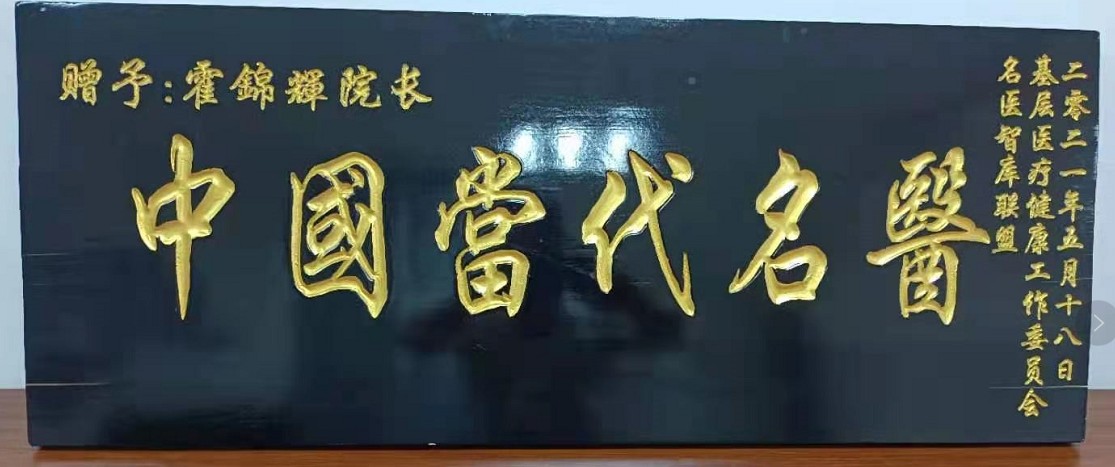 赠予:霍錦輝院长
中國當代名醫
二零二一年五月十八日
基层医疗健康工作委员会
名医智库联盟